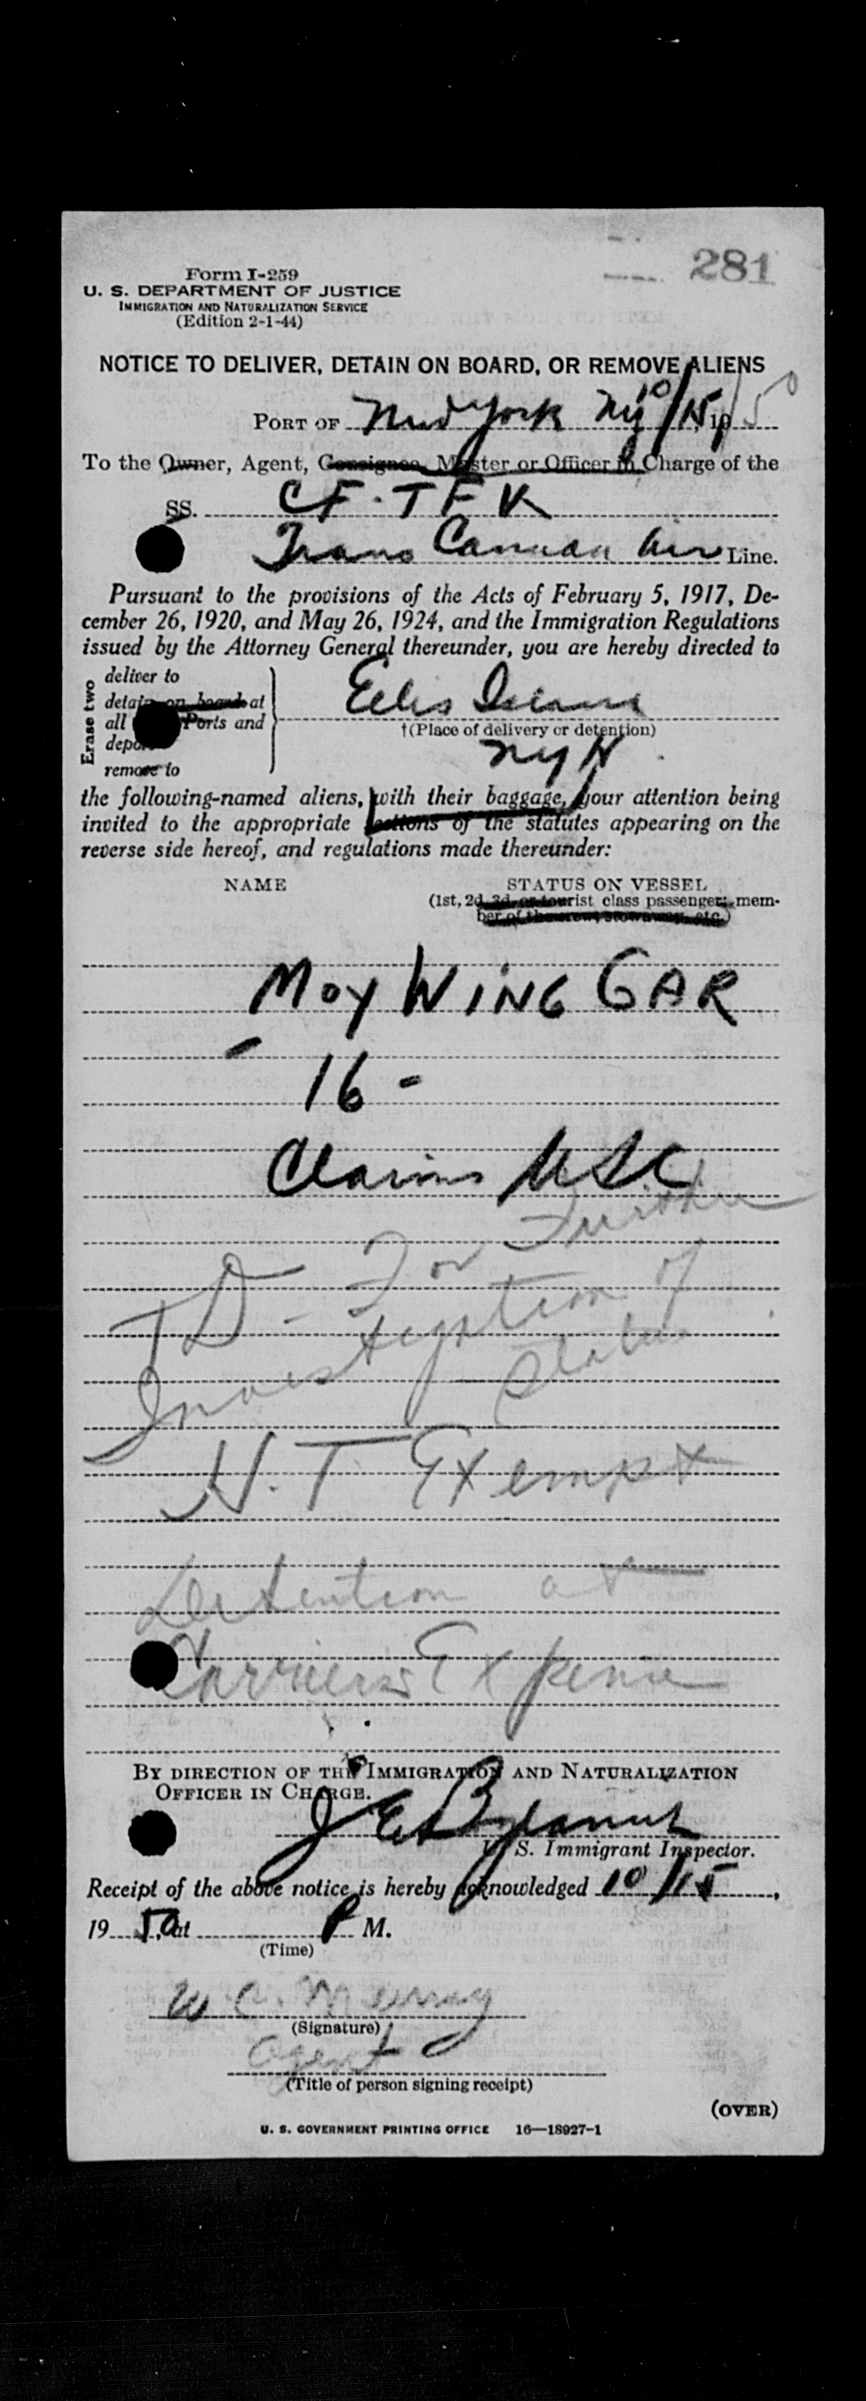 281
Form I-259
U. S. DEPARTMENT OF JUSTICE
IMMIGRATION AND NATURALIZATION SERVICE
(Edition 2-1-44)
NOTICE TO DELIVER, DETAIN ON BOARD, OR REMOVE ALIENS
PORT OF New York NY 10/15, 19 50
To the Owner, Agent, Consignee, Master or Officer in Charge of the
SS. CF-TFK
Trans Canada Air Line.
Pursuant to the provisions of the Acts of February 5, 1917, De-
cember 26, 1920, and May 26, 1924, and the Immigration Regulations
issued by the Attorney General thereunder, you are hereby directed to
Erase two
deliver to
detain on board at
all Ports and
remove to
Ellis Island
†(Place of delivery or detention)
NYH
the following-named aliens, with their baggage, your attention being
invited to the appropriate sections of the statutes appearing on the
reverse side hereof, and regulations made thereunder:
NAME STATUS ON VESSEL
(1st, 2d, 3d, or tourist class passenger; mem-
ber of the crew, stowaway, etc.)
MOY WING GAR
16 -
Claims USC
TD - For Further
Investigation of
Status
H.T Exempt
Detention at
Carriers Expense
BY DIRECTION OF THE IMMIGRATION AND NATURALIZATION
OFFICER IN CHARGE.
U. S. Immigrant Inspector.
Receipt of the above notice is hereby acknowledged 10/15,
19 50, at P M.
(Time)
W C. Murray
(Signature)
Agent
(Title of person signing receipt)
(OVER)
U. S. GOVERNMENT PRINTING OFFICE 16—18927-1